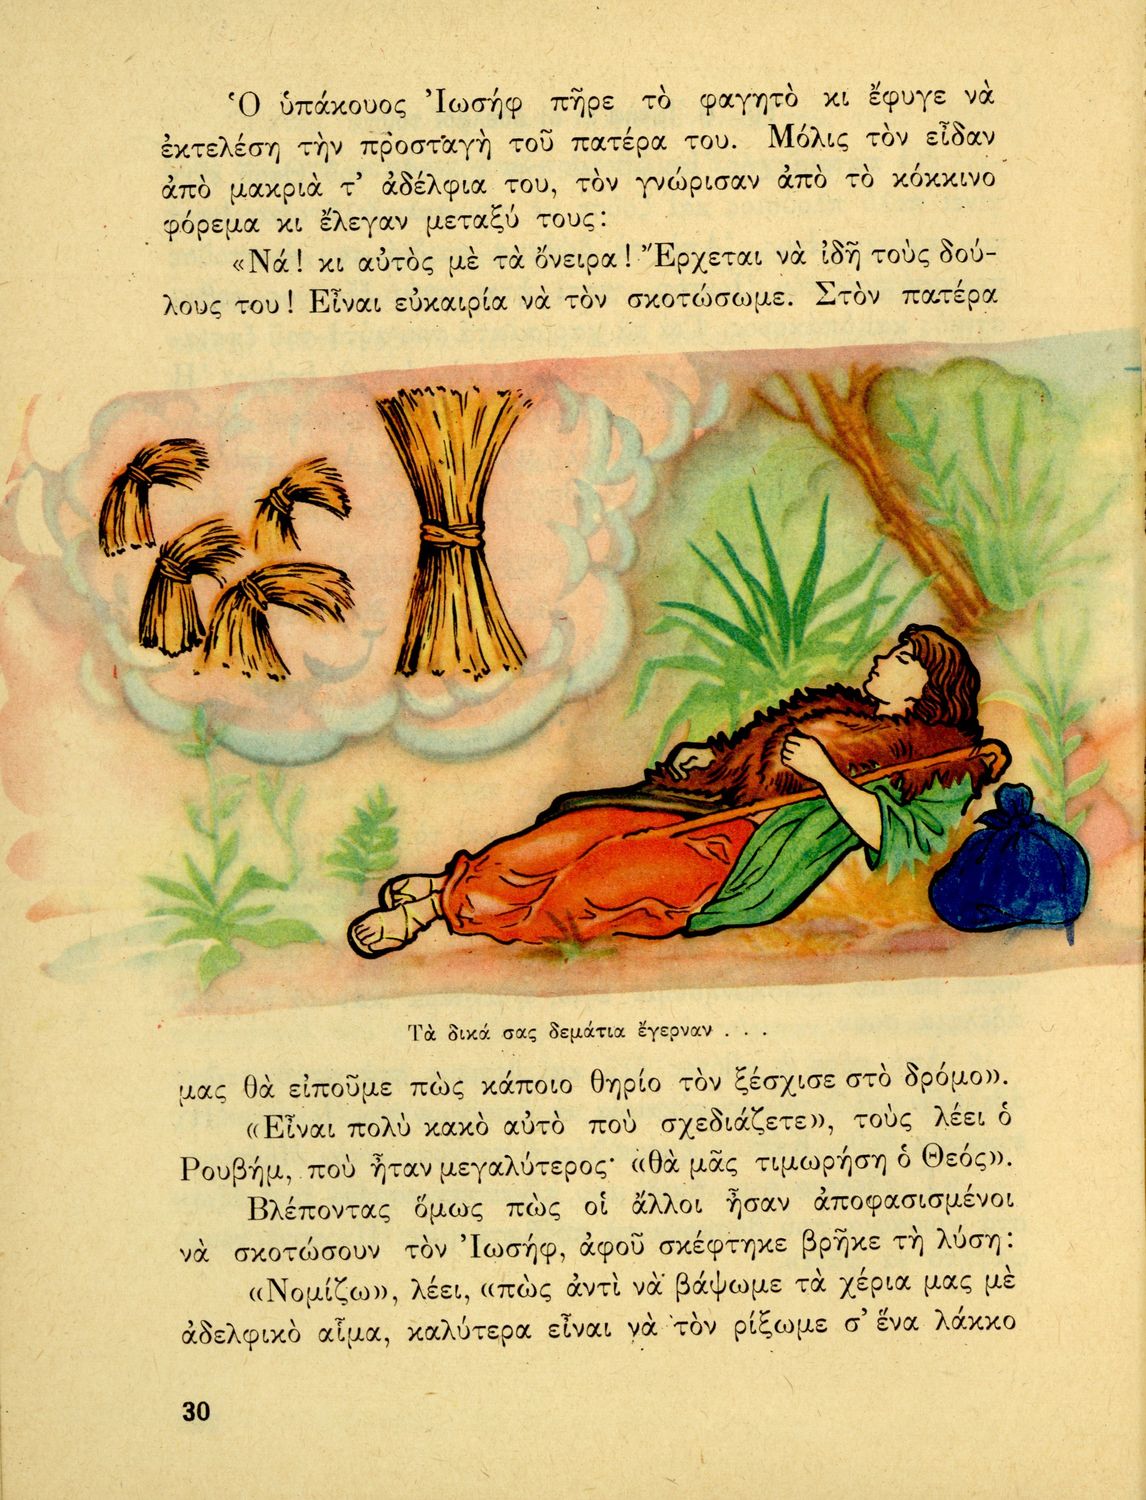 Ὁ ὑπάκουος Ἰωσήφ πῆρε τὸ φαγητὸ κι ἔφυγε νὰ
ἐκτελέση τὴν προσταγὴ τοῦ πατέρα του. Μόλις τὸν εἶδαν
ἀπὸ μακριὰ τ' ἀδέλφια του, τὸν γνώρισαν ἀπὸ τὸ κόκκινο
φόρεμα κι ἔλεγαν μεταξύ τους:
«Νά! κι αὐτὸς μὲ τὰ ὄνειρα! Ἔρχεται νὰ ἰδῆ τοὺς δού-
λους του! Εἶναι εὐκαιρία νὰ τὸν σκοτώσωμε. Στὸν πατέρα
Τὰ δικά σας δεμάτια ἔγερναν . . .
μας θὰ εἰποῦμε πὼς κάποιο θηρίο τὸν ξέσχισε στὸ δρόμο».
«Εἶναι πολὺ κακὸ αὐτὸ ποὺ σχεδιάζετε», τοὺς λέει ὁ
Ρουβήμ, ποὺ ἦταν μεγαλύτερος· «θὰ μᾶς τιμωρήση ὁ Θεός».
Βλέποντας ὅμως πὼς οἱ ἄλλοι ἦσαν ἀποφασισμένοι
νὰ σκοτώσουν τὸν Ἰωσήφ, ἀφοῦ σκέφτηκε βρῆκε τὴ λύση:
«Νομίζω», λέει, «πὼς ἀντὶ νὰ βάψωμε τὰ χέρια μας μὲ
ἀδελφικὸ αἷμα, καλύτερα εἶναι νὰ τὸν ρίξωμε σ' ἕνα λάκκο
30